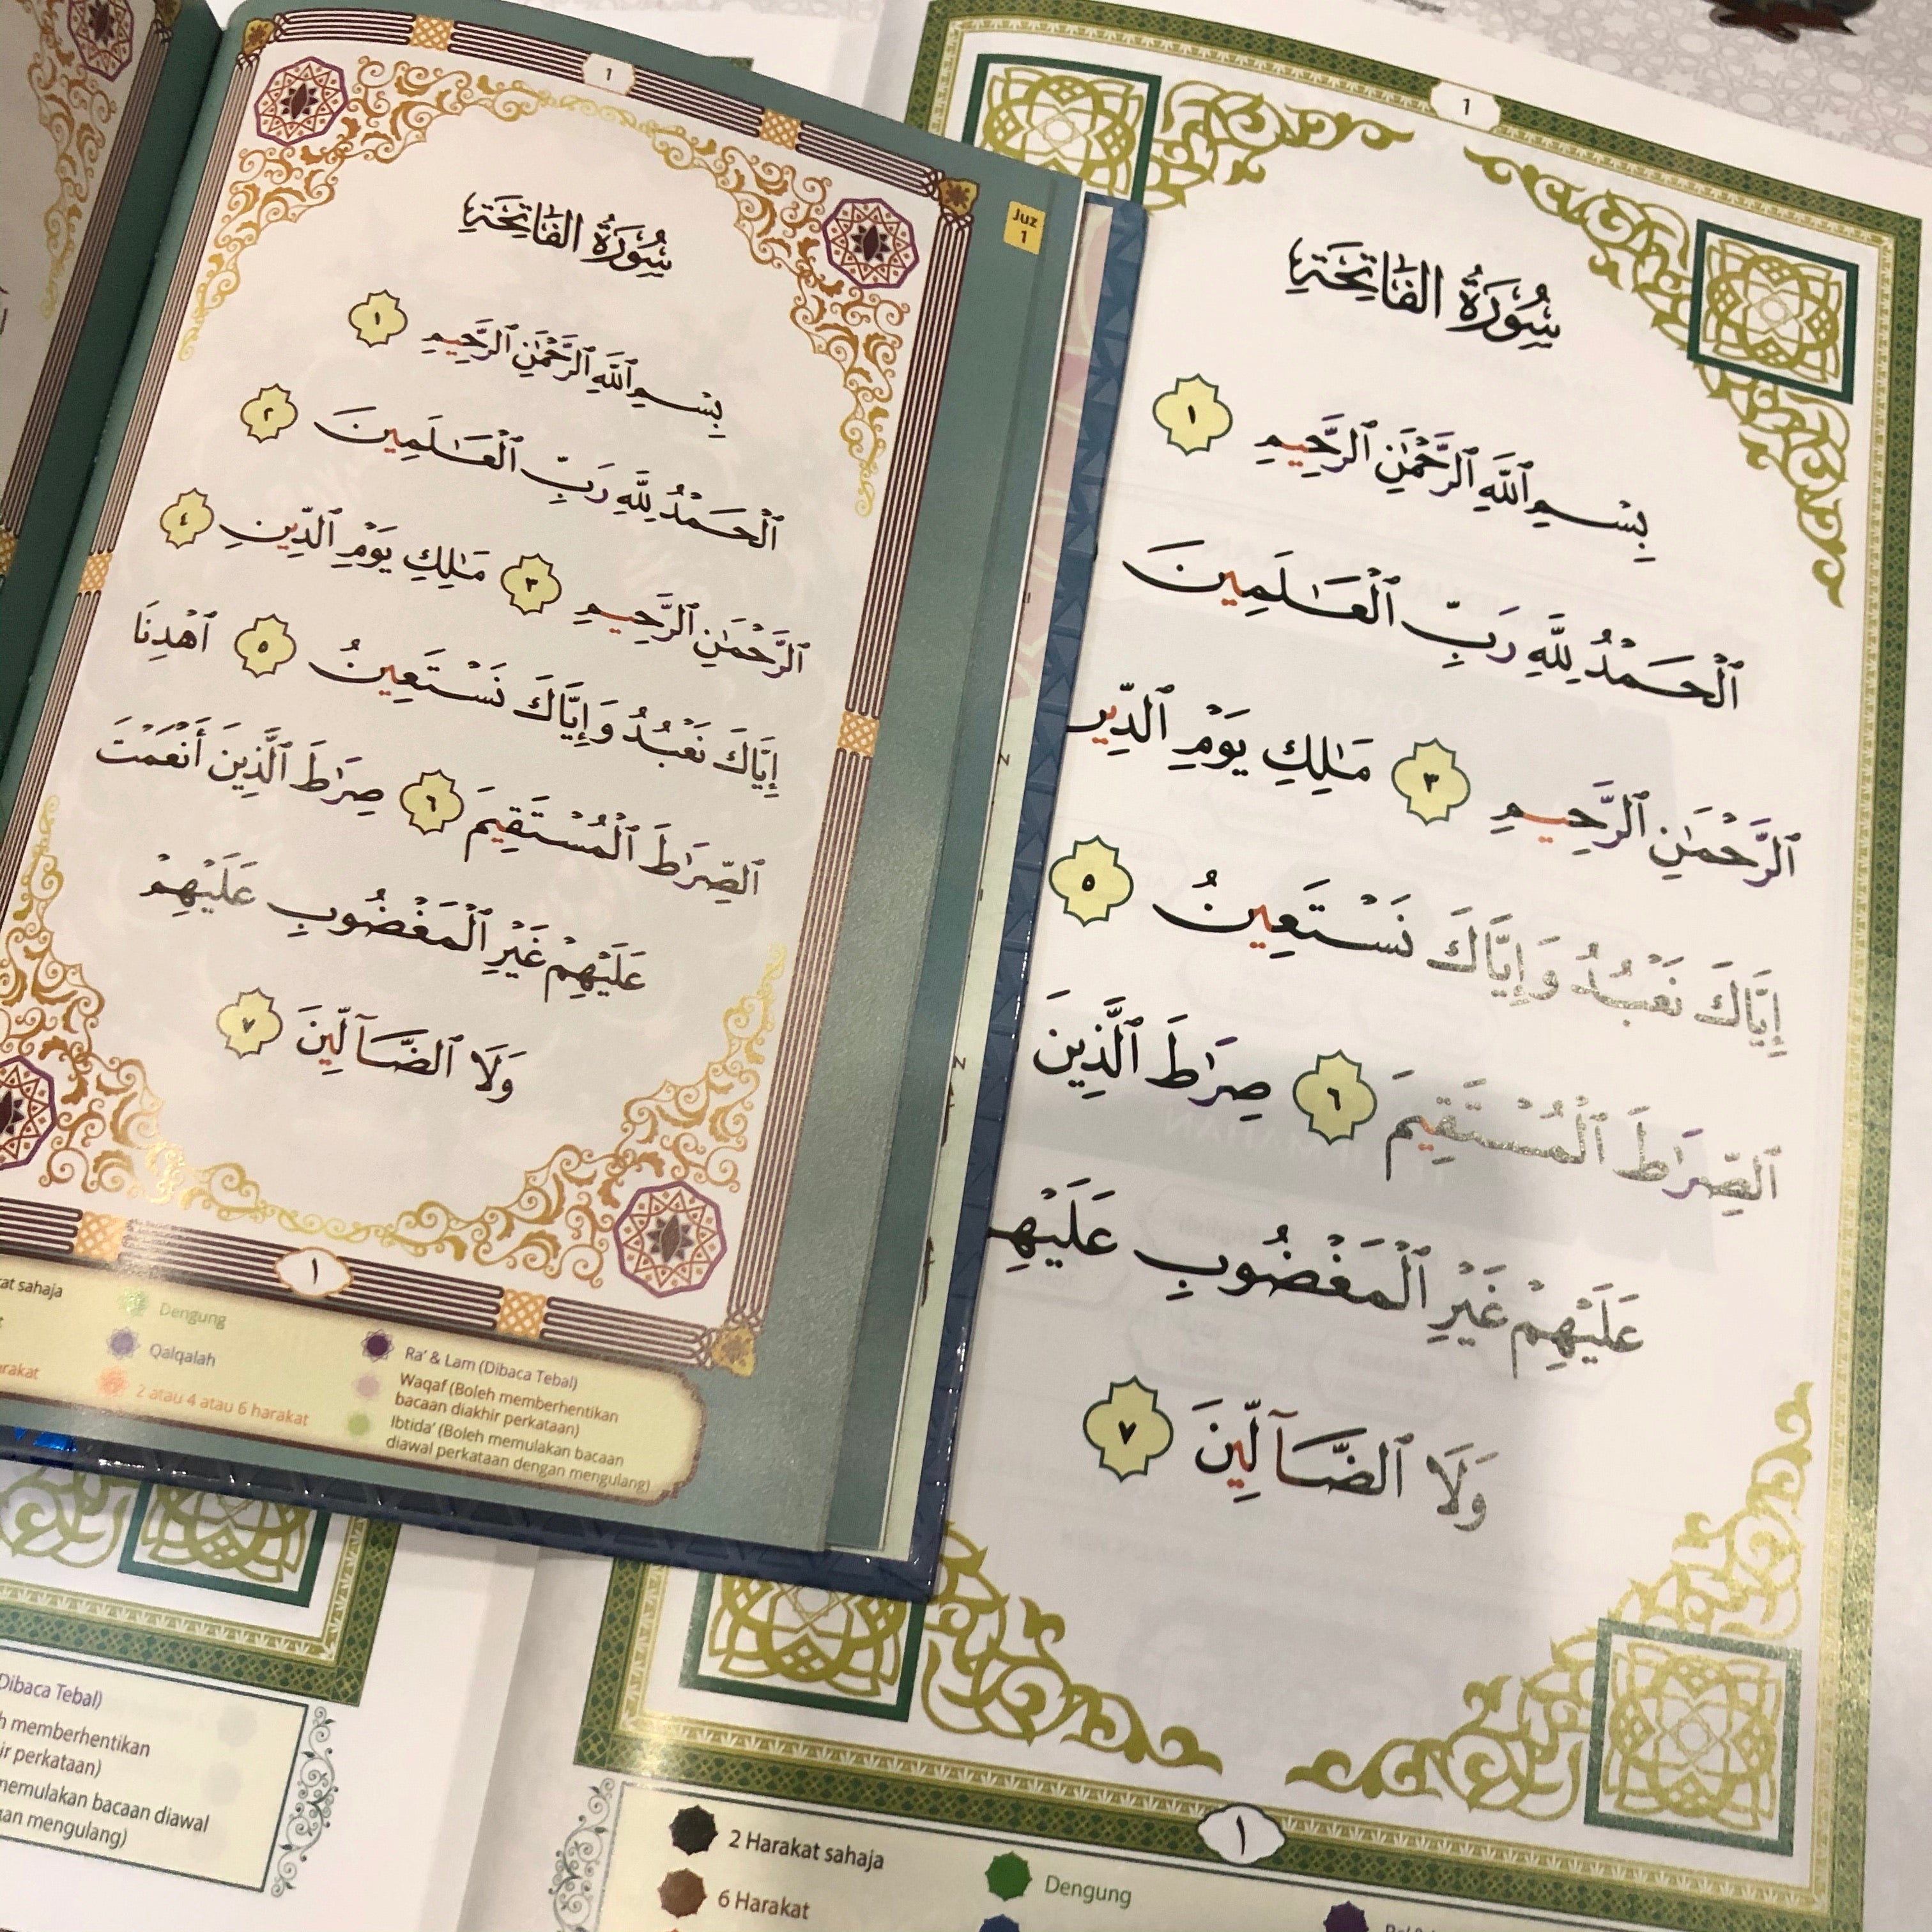 1
Juz
1
سُورَةُ الفَاتِحَةِ
بِسْمِ ٱللَّهِ ٱلرَّحْمَٰنِ ٱلرَّحِيمِ ١
ٱلْحَمْدُ لِلَّهِ رَبِّ ٱلْعَـٰلَمِينَ ٢
ٱلرَّحْمَٰنِ ٱلرَّحِيمِ ٣ مَـٰلِكِ يَوْمِ ٱلدِّينِ ٤
إِيَّاكَ نَعْبُدُ وَإِيَّاكَ نَسْتَعِينُ ٥ ٱهْدِنَا
ٱلصِّرَٰطَ ٱلْمُسْتَقِيمَ ٦ صِرَٰطَ ٱلَّذِينَ أَنْعَمْتَ
عَلَيْهِمْ غَيْرِ ٱلْمَغْضُوبِ عَلَيْهِمْ
وَلَا ٱلضَّآلِّينَ ٧
١
sahaja
Dengung
Qalqalah
2 atau 4 atau 6 harakat
Ra' & Lam (Dibaca Tebal)
Waqaf (Boleh memberhentikan
bacaan diakhir perkataan)
Ibtida' (Boleh memulakan bacaan
diawal perkataan dengan mengulang)
1
سُورَةُ الفَاتِحَةِ
بِسْمِ ٱللَّهِ ٱلرَّحْمَٰنِ ٱلرَّحِيمِ ١
ٱلْحَمْدُ لِلَّهِ رَبِّ ٱلْعَـٰلَمِينَ
ٱلرَّحْمَٰنِ ٱلرَّحِيمِ ٣ مَـٰلِكِ يَوْمِ
إِيَّاكَ نَعْبُدُ وَإِيَّاكَ نَسْتَعِينُ ٥
ٱلصِّرَٰطَ ٱلْمُسْتَقِيمَ ٦ صِرَٰطَ ٱلَّذِينَ
عَلَيْهِمْ غَيْرِ ٱلْمَغْضُوبِ
وَلَا ٱلضَّآلِّينَ ٧
١
2 Harakat sahaja
6 Harakat
Dengung
Dibaca Tebal)
memberhentikan
perkataan)
memulakan bacaan diawal
mengulang)